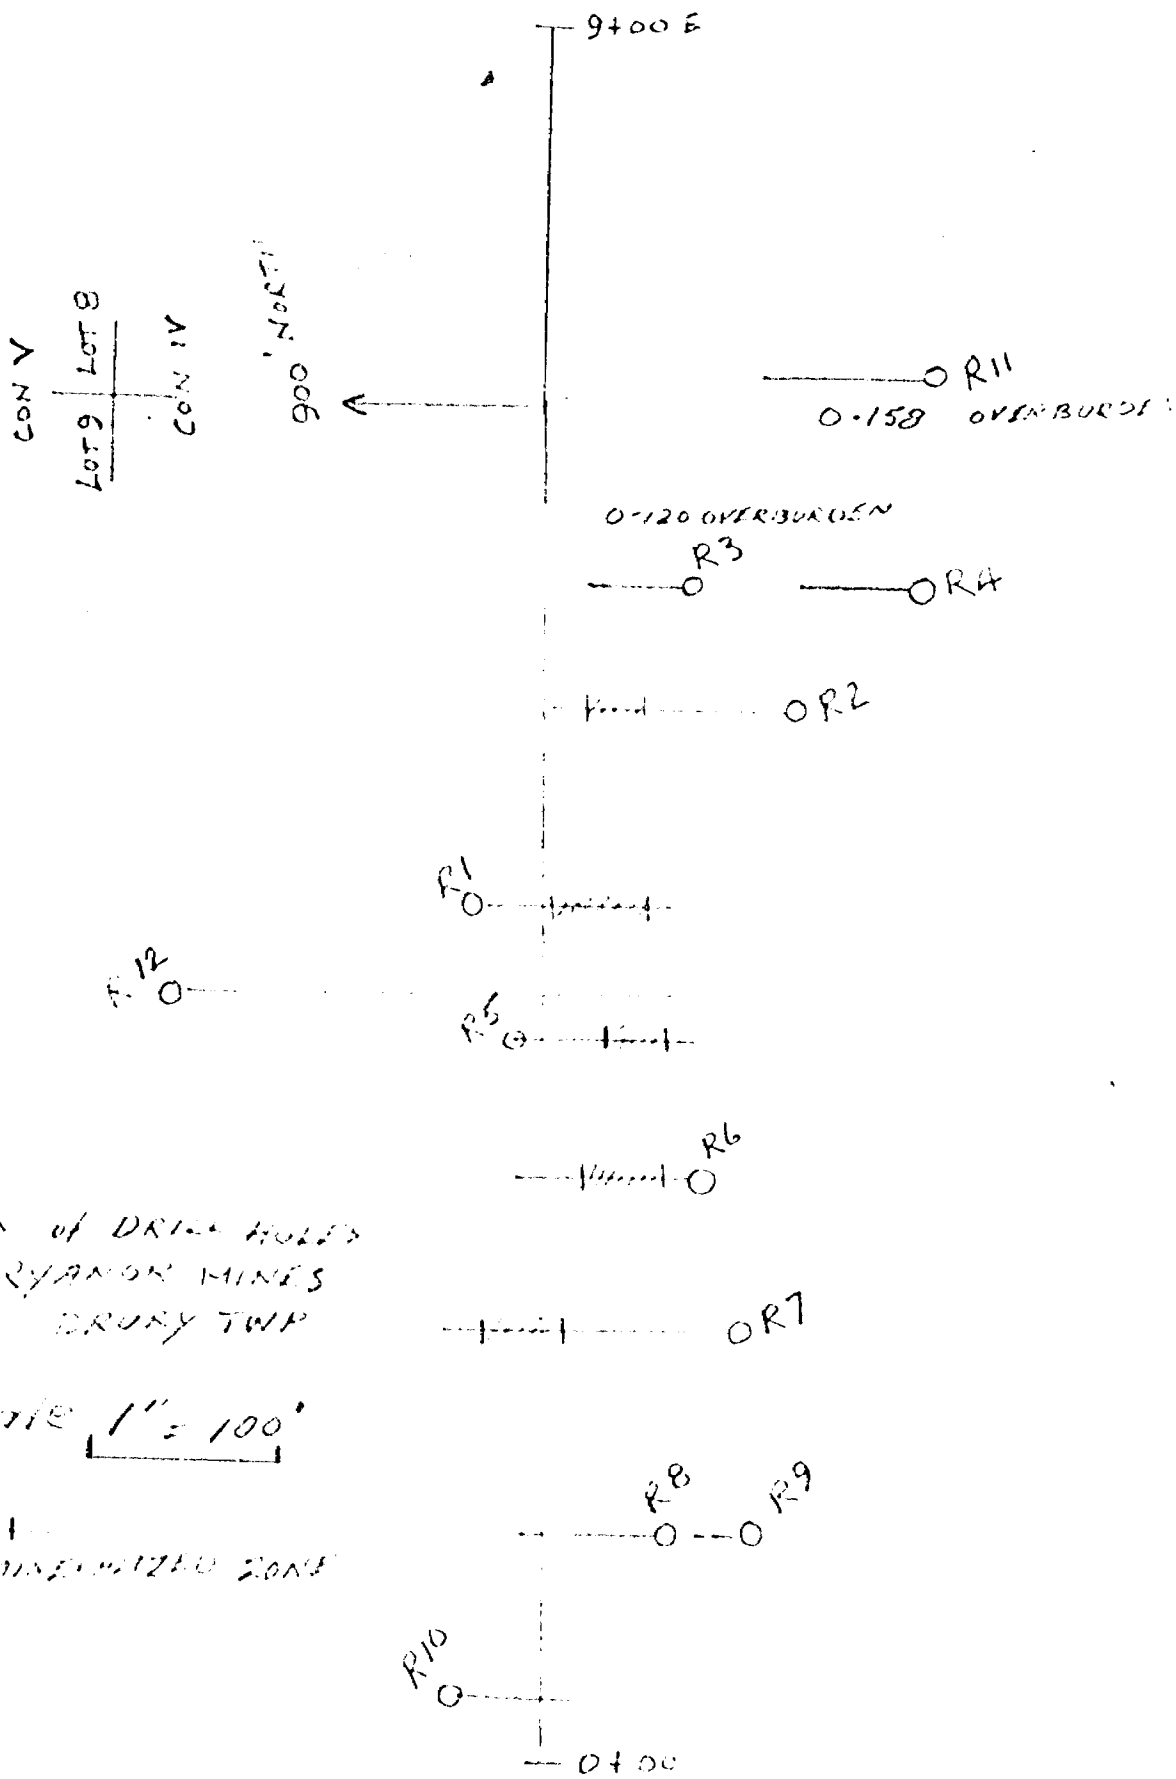 9+00 E
CON V
LOT 9 LOT 8
CON IV
900' NORTH
R11
0-158 OVERBURDE
0-120 OVERBURDEN
R3
R4
R2
R1
R12
R5
R6
of DRILL HOLES
RYANOR MINES
DRURY TWP
R7
1" = 100'
R8
R9
ZONE
R10
0+00